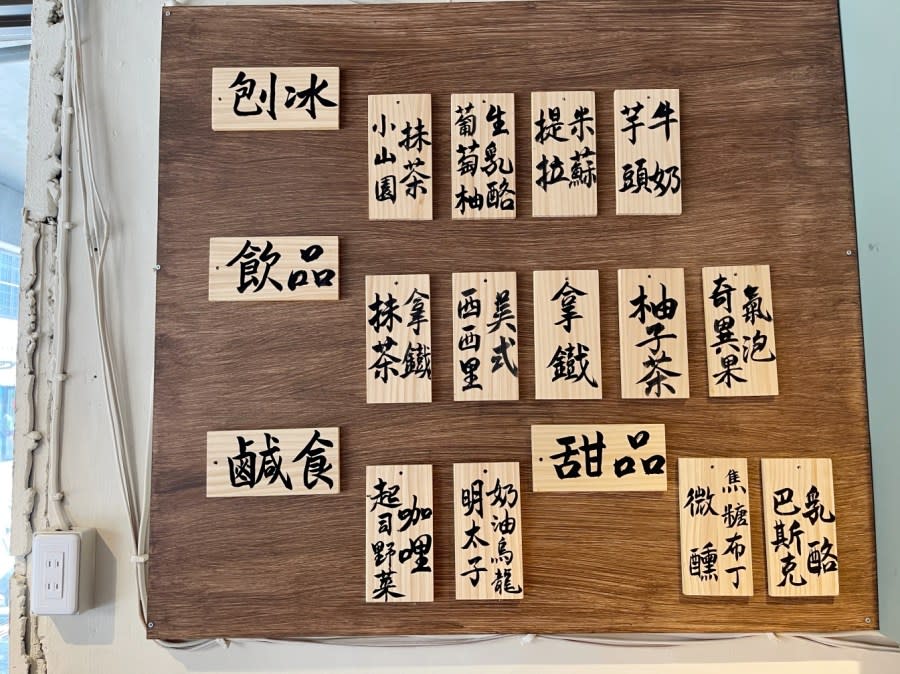 刨冰
小山園
抹茶
葡萄柚
生乳酪
提拉
米蘇
芋頭
牛奶
飲品
抹茶
拿鐵
西西里
美式
拿鐵
柚子茶
奇異果
氣泡
鹹食
起司野菜
咖哩
明太子
奶油烏龍
甜品
微醺
焦糖布丁
巴斯克
乳酪